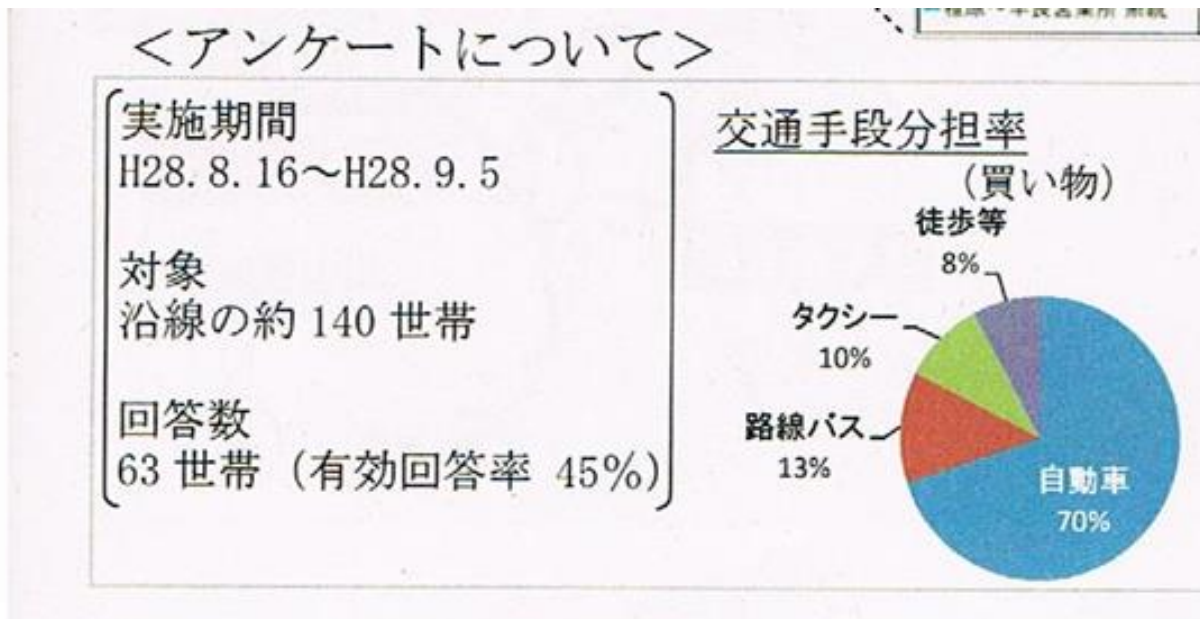 ＜アンケートについて＞
実施期間
H28.8.16～H28.9.5
対象
沿線の約 140 世帯
回答数
63 世帯（有効回答率 45%）
交通手段分担率
（買い物）
徒歩等
8%
タクシー
10%
路線バス
13%
自動車
70%